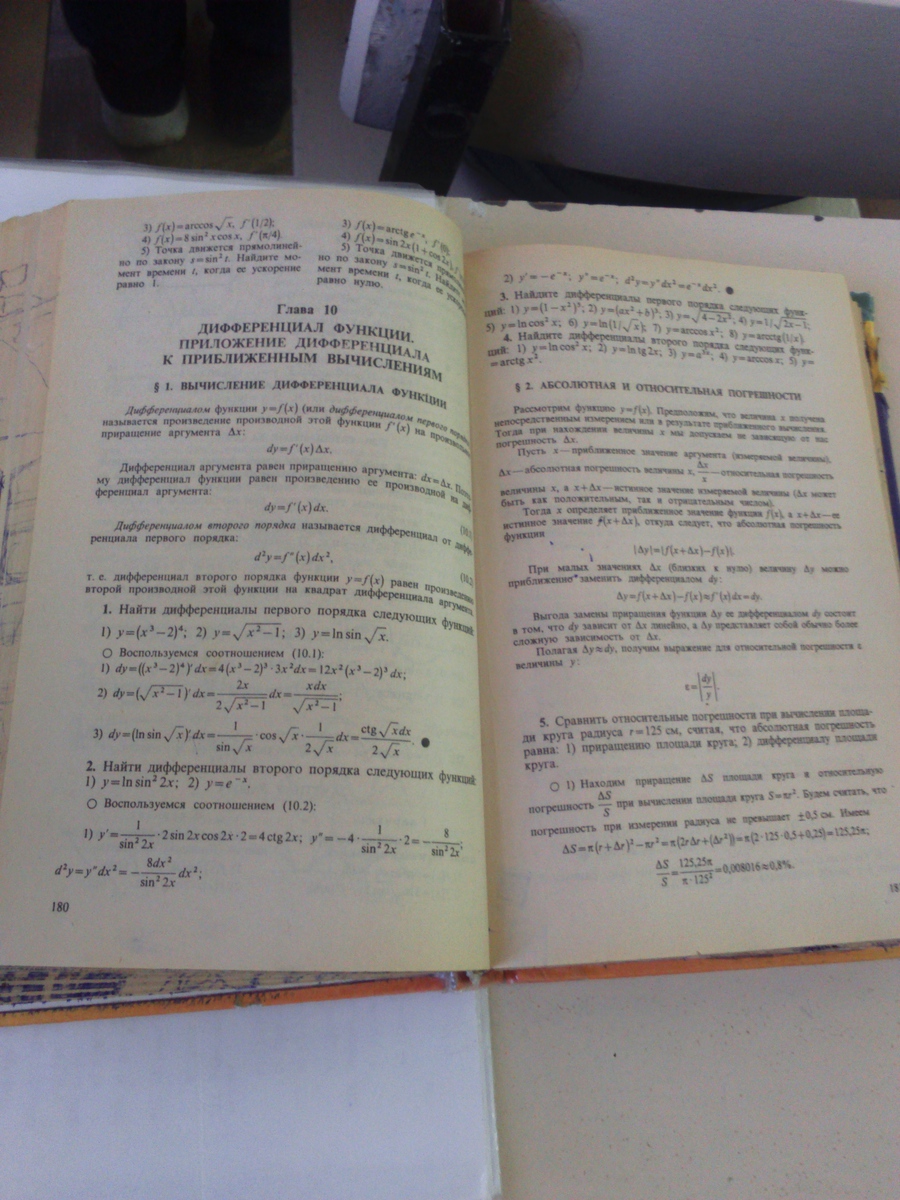 3) f(x)=arccos √x, f′(1/2);
4) f(x)=8 sin² x cos x, f′(π/4).
5) Точка движется прямолиней-
но по закону s=sin² t. Найдите мо-
мент времени t, когда ее ускорение
равно 1.
3) f(x)=arctg e⁻ˣ, f′(0);
4) f(x)=sin 2x(1+cos 2x),
5) Точка движется
но по закону s=sin² t. Найдите
мент времени t, когда ее
равно нулю.
Глава 10
ДИФФЕРЕНЦИАЛ ФУНКЦИИ.
ПРИЛОЖЕНИЕ ДИФФЕРЕНЦИАЛА
К ПРИБЛИЖЕННЫМ ВЫЧИСЛЕНИЯМ
§ 1. ВЫЧИСЛЕНИЕ ДИФФЕРЕНЦИАЛА ФУНКЦИИ
Дифференциалом функции y=f(x) (или дифференциалом первого
называется произведение производной этой функции f′(x) на
приращение аргумента Δx:
dy=f′(x)Δx.
Дифференциал аргумента равен приращению аргумента: dx=Δx.
му дифференциал функции равен произведению ее производной на
ференциал аргумента:
dy=f′(x)dx.
(10.1)
Дифференциалом второго порядка называется дифференциал от
ренциала первого порядка:
d²y=f″(x)dx²,
(10.2)
т. е. дифференциал второго порядка функции y=f(x) равен
второй производной этой функции на квадрат дифференциала аргумента.
1. Найти дифференциалы первого порядка следующих функций:
1) y=(x³−2)⁴; 2) y=√(x²−1); 3) y=ln sin √x.
○ Воспользуемся соотношением (10.1):
1) dy=((x³−2)⁴)′dx=4(x³−2)³·3x²dx=12x²(x³−2)³dx;
2) dy=(√(x²−1))′dx=2x/(2√(x²−1)) dx=xdx/√(x²−1);
3) dy=(ln sin √x)′dx=1/(sin √x)·cos √x·1/(2√x) dx=ctg √x dx/(2√x). ●
2. Найти дифференциалы второго порядка следующих функций:
1) y=ln sin² 2x; 2) y=e⁻ˣ.
○ Воспользуемся соотношением (10.2):
1) y′=1/(sin² 2x)·2 sin 2x cos 2x·2=4 ctg 2x; y″=−4·1/(sin² 2x)·2=−8/(sin² 2x);
d²y=y″dx²=−8dx²/(sin² 2x) dx²;
180
2) y′=−e⁻ˣ; y″=e⁻ˣ; d²y=y″dx²=e⁻ˣdx². ●
3. Найдите дифференциалы первого порядка следующих функ-
ций: 1) y=(1−x²)³; 2) y=(ax²+b)³; 3) y=√(4−2x³); 4) y=1/√(2x−1);
5) y=ln cos² x; 6) y=ln(1/√x); 7) y=arccos x²; 8) y=arcctg(1/x).
4. Найдите дифференциалы второго порядка следующих функ-
ций: 1) y=ln cos² x; 2) y=ln tg 2x; 4) y=arccos x; 5) y=
=arctg x².
§ 2. АБСОЛЮТНАЯ И ОТНОСИТЕЛЬНАЯ ПОГРЕШНОСТИ
Рассмотрим функцию y=f(x). Предположим, что величина x получена
непосредственным измерением или в результате приближенного вычисления.
Тогда при нахождении величины x мы допускаем не зависящую от нас
погрешность Δx.
Пусть x—приближенное значение аргумента (измеряемой величины),
Δx—абсолютная погрешность величины x, Δx/x—относительная погрешность
величины x, а x+Δx—истинное значение измеряемой величины (Δx может
быть как положительным, так и отрицательным числом).
Тогда x определяет приближенное значение функции f(x), а x+Δx—ее
истинное значение f(x+Δx), откуда следует, что абсолютная погрешность
функции
|Δy|=|f(x+Δx)−f(x)|.
При малых значениях Δx (близких к нулю) величину Δy можно
приближенно заменить дифференциалом dy:
Δy=f(x+Δx)−f(x)≈f′(x)dx=dy.
Выгода замены приращения функции Δy ее дифференциалом dy состоит
в том, что dy зависит от Δx линейно, а Δy представляет собой обычно более
сложную зависимость от Δx.
Полагая Δy≈dy, получим выражение для относительной погрешности ε
величины y:
ε=|dy/y|.
5. Сравнить относительные погрешности при вычислении площа-
ди круга радиуса r=125 см, считая, что абсолютная погрешность
равна: 1) приращению площади круга; 2) дифференциалу площади
круга.
○ 1) Находим приращение ΔS площади круга и относительную
погрешность ΔS/S при вычислении площади круга S=πr². Будем считать, что
погрешность при измерении радиуса не превышает ±0,5 см. Имеем
ΔS=π(r+Δr)²−πr²=π(2rΔr+(Δr²))=π(2·125·0,5+0,25)=125,25π;
ΔS/S=125,25π/(π·125²)=0,008016≈0,8%.